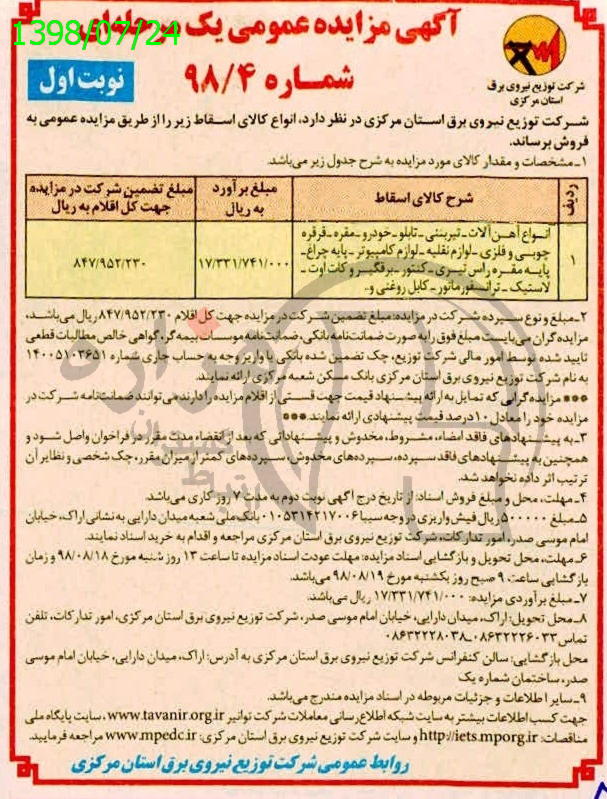 1398/07/24
آگهی مزایده عمومی یک مرحله‌ای
شماره ۹۸/۴
نوبت اول
شرکت توزیع نیروی برق
استان مرکزی
شرکت توزیع نیروی برق استان مرکزی در نظر دارد، انواع کالای اسقاط زیر را از طریق مزایده عمومی به
فروش برساند.
۱ـ مشخصات و مقدار کالای مورد مزایده به شرح جدول زیر می‌باشد.
ردیف
شرح کالای اسقاط
مبلغ برآورد
به ریال
مبلغ تضمین شرکت در مزایده
جهت کل اقلام به ریال
۱
انواع آهن آلات ـ تیربتنی ـ تابلو ـ خودرو ـ مقره ـ قرقره
چوبی و فلزی ـ لوازم نقلیه ـ لوازم کامپیوتر ـ پایه چراغ ـ
پایه مقره راس تیری ـ کنتور ـ برقگیر و کات اوت ـ
لاستیک ـ ترانسفورماتور ـ کابل روغنی و..
۱۷/۳۳۱/۷۴۱/۰۰۰
۸۴۷/۹۵۲/۲۳۰
۲ـ مبلغ و نوع سپرده شرکت در مزایده: مبلغ تضمین شرکت در مزایده جهت کل اقلام ۸۴۷/۹۵۲/۲۳۰ ریال می‌باشد،
مزایده گران می‌بایست مبلغ فوق را به صورت ضمانت‌نامه بانکی، ضمانت‌نامه موسسات بیمه‌گر، گواهی خالص مطالبات قطعی
تایید شده توسط امور مالی شرکت توزیع، چک تضمین شده بانکی یا واریز وجه به حساب جاری شماره ۱۴۰۰۵۱۰۳۶۵۱
به نام شرکت توزیع نیروی برق استان مرکزی بانک مسکن شعبه مرکزی ارائه نمایند.
*** مزایده گرانی که تمایل به ارائه پیشنهاد قیمت جهت قسمتی از اقلام مزایده را دارند می‌توانند ضمانت‌نامه شرکت در
مزایده خود را معادل ۱۰ درصد قیمت پیشنهادی ارائه نمایند.***
۳ـ به پیشنهادهای فاقد امضاء، مشروط، مخدوش و پیشنهاداتی که بعد از انقضاء مدت مقرر در فراخوان واصل شود و
همچنین به پیشنهادهای فاقد سپرده، سپرده‌های مخدوش، سپرده‌های کمتر از میزان مقرر، چک شخصی و نظایر آن
ترتیب اثر داده نخواهد شد.
۴ـ مهلت، محل و مبلغ فروش اسناد: از تاریخ درج آگهی نوبت دوم به مدت ۷ روز کاری می‌باشد.
۵ـ مبلغ ۵۰۰۰۰۰ ریال فیش واریزی در وجه سیبا ۰۱۰۵۳۱۴۲۱۷۰۰۶ بانک ملی شعبه میدان دارایی به نشانی اراک، خیابان
امام موسی صدر، امور تدارکات، شرکت توزیع نیروی برق استان مرکزی مراجعه و اقدام به خرید اسناد نمایند.
۶ـ مهلت، محل تحویل و بازگشایی اسناد مزایده: مهلت عودت اسناد مزایده تا ساعت ۱۳ روز شنبه مورخ ۹۸/۰۸/۱۸ و زمان
بازگشایی ساعت، ۹ صبح روز یکشنبه مورخ ۹۸/۰۸/۱۹ می‌باشد.
۷ـ مبلغ برآوردی مزایده: ۱۷/۳۳۱/۷۴۱/۰۰۰ ریال می‌باشد.
۸ـ محل تحویل: اراک، میدان دارایی، خیابان امام موسی صدر، شرکت توزیع نیروی برق استان مرکزی، امور تدارکات، تلفن
تماس ۰۸۶۳۲۲۲۶۰۳۳ـ۰۸۶۳۲۲۲۸۰۳۸
محل بازگشایی: سالن کنفرانس شرکت توزیع نیروی برق استان مرکزی به آدرس: اراک، میدان دارایی، خیابان امام موسی
صدر، ساختمان شماره یک
۹ـ سایر اطلاعات و جزئیات مربوطه در اسناد مزایده مندرج می‌باشد.
جهت کسب اطلاعات بیشتر به سایت شبکه اطلاع رسانی معاملات شرکت توانیر www.tavanir.org.ir، سایت پایگاه ملی
مناقصات: http://iets.mporg.ir و سایت شرکت توزیع نیروی برق استان مرکزی: www.mpedc.ir مراجعه فرمایید.
روابط عمومی شرکت توزیع نیروی برق استان مرکزی